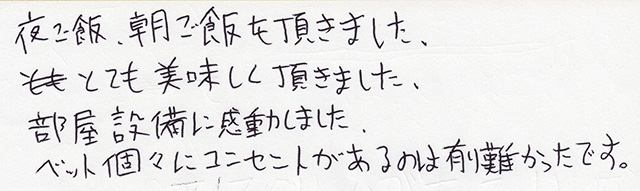 夜ご飯、朝ご飯を頂きました、
とても美味しく頂きました、
部屋設備に感動しました、
ベット個々にコンセントがあるのは有難かったです。